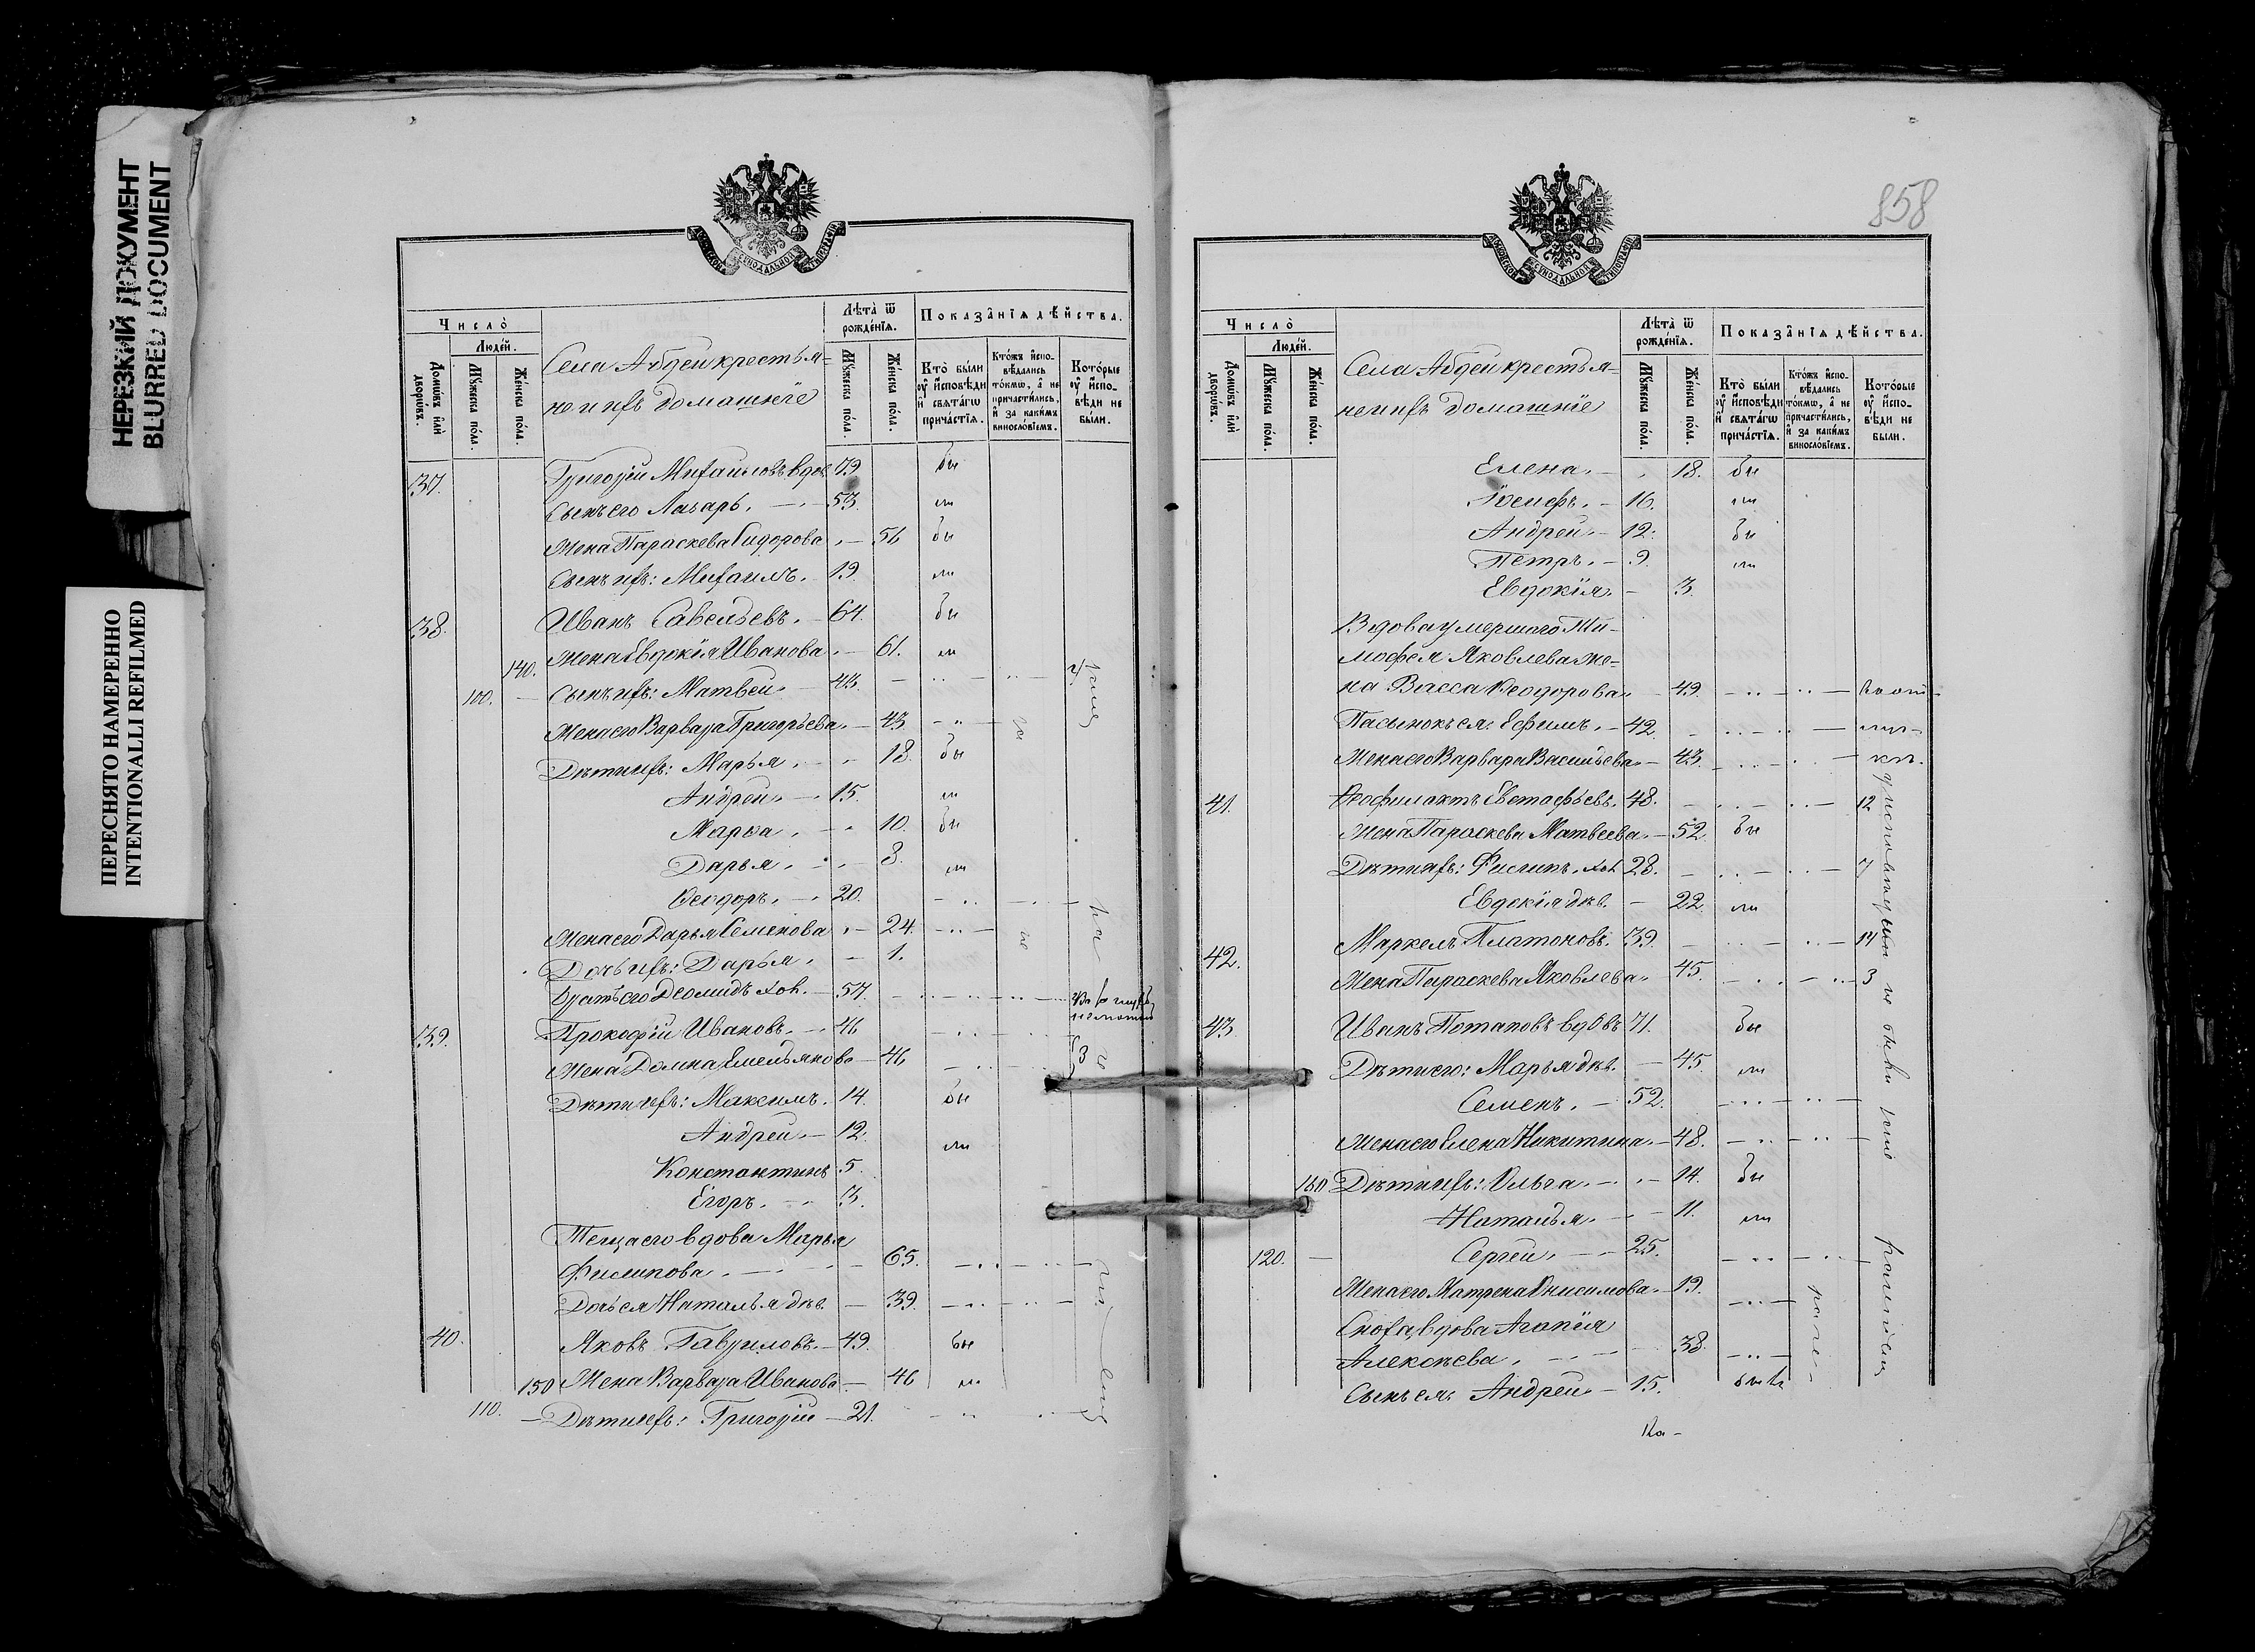 НЕРЕЗКИЙ ДОКУМЕНТ
BLURRED DOCUMENT
ПЕРЕСНЯТО НАМЕРЕННО
INTENTIONALLI REFILMED
Число̀
Людей.
Домѡвъ и҆лѝ дворѡвъ.
Мꙋжеска пола.
Женска пола.
Села Абдеи крестья-
не и ихъ домашніе
Лѣта̀ ѿ рожденїѧ.
Мꙋжеска пола.
Женска пола.
Показанїѧ дѣйства.
Кто̀ были ᲂу҆ и҆сповѣди и҆ свѧтагѡ причастїѧ.
Ктожъ и҆спо-вѣдались токмѡ, а҆ не причастились, и҆ за какимъ винословїемъ.
Которые ᲂу҆ и҆спо-вѣди не были.
37. Григорій Михаиловъ вдов 79 бы
Сынъ его Лазарь. 53. ли
Жена Параскева Сидорова 56 бы
Сынъ ихъ: Михаилъ. 19. ли
38. Иванъ Савельевъ. 64. бы
140. Жена Евдокія Иванова 61. ли
100. Сынъ ихъ: Матвей. 43.
Жена его Варвара Григорьева 43.
Дѣти ихъ: Марья 18. бы
Андрей 15. ли
Марѳа 10. бы
Дарья 8. ли
Ѳеодоръ 20.
Жена его Дарья Семенова 24.
Дочь ихъ: Дарья 1.
Братъ его Деомидъ хол. 57.
39. Прокофій Ивановъ. 46
Жена Домна Емельянова 46 3
Дѣти ихъ: Максимъ. 14. бы
Андрей 12. ли
Константинъ 5.
Егоръ. 3.
Теща его вдова Марья
Филипова 65.
Дочь ея Наталья дѣв. 39.
40. Яковъ Гавриловъ. 49. бы
150 Жена Варвара Иванова 46 ли
110. Дѣти ихъ: Григорій 21.
858
Число̀
Людей.
Домѡвъ и҆лѝ дворѡвъ.
Мꙋжеска пола.
Женска пола.
Села Абдеи крестья-
не и ихъ домашніе
Лѣта̀ ѿ рожденїѧ.
Мꙋжеска пола.
Женска пола.
Показанїѧ дѣйства.
Кто̀ были ᲂу҆ и҆сповѣди и҆ свѧтагѡ причастїѧ.
Ктожъ и҆спо-вѣдались токмѡ, а҆ не причастились, и҆ за какимъ винословїемъ.
Которые ᲂу҆ и҆спо-вѣди не были.
Елена. 18. бы
Іосифъ. 16. ли
Андрей 12. бы
Петръ. 9. ли
Евдокія 3.
Вдова умершаго Ти-
мофея Яковлева же-
на Васса Ѳеодорова 49.
Пасынокъ ея: Ефимъ. 42.
Жена его Варвара Васильева 43.
41. Ѳеофилактъ Евстафьевъ. 48. 12
Жена Параскева Матвеева 52 бы
Дѣти ихъ: Филипъ. хол. 28. 7
Евдокія дѣв. 22. ли
42. Маркелъ Платоновъ. 39. 14
Жена Параскева Яковлева 45. 3
43 Иванъ Потаповъ вдовъ 71. бы
Дѣти его: Марья дѣв. 45. ли
Семенъ. 52.
Жена его Елена Никитина 48.
160 Дѣти ихъ: Ольга 14. бы
Наталья 11. ли
120. Сергей. 25.
Жена его Матрена Онисимова 19.
Сноха, вдова Агапія
Алексѣева 38.
Сынъ ея: Андрей 15. былъ